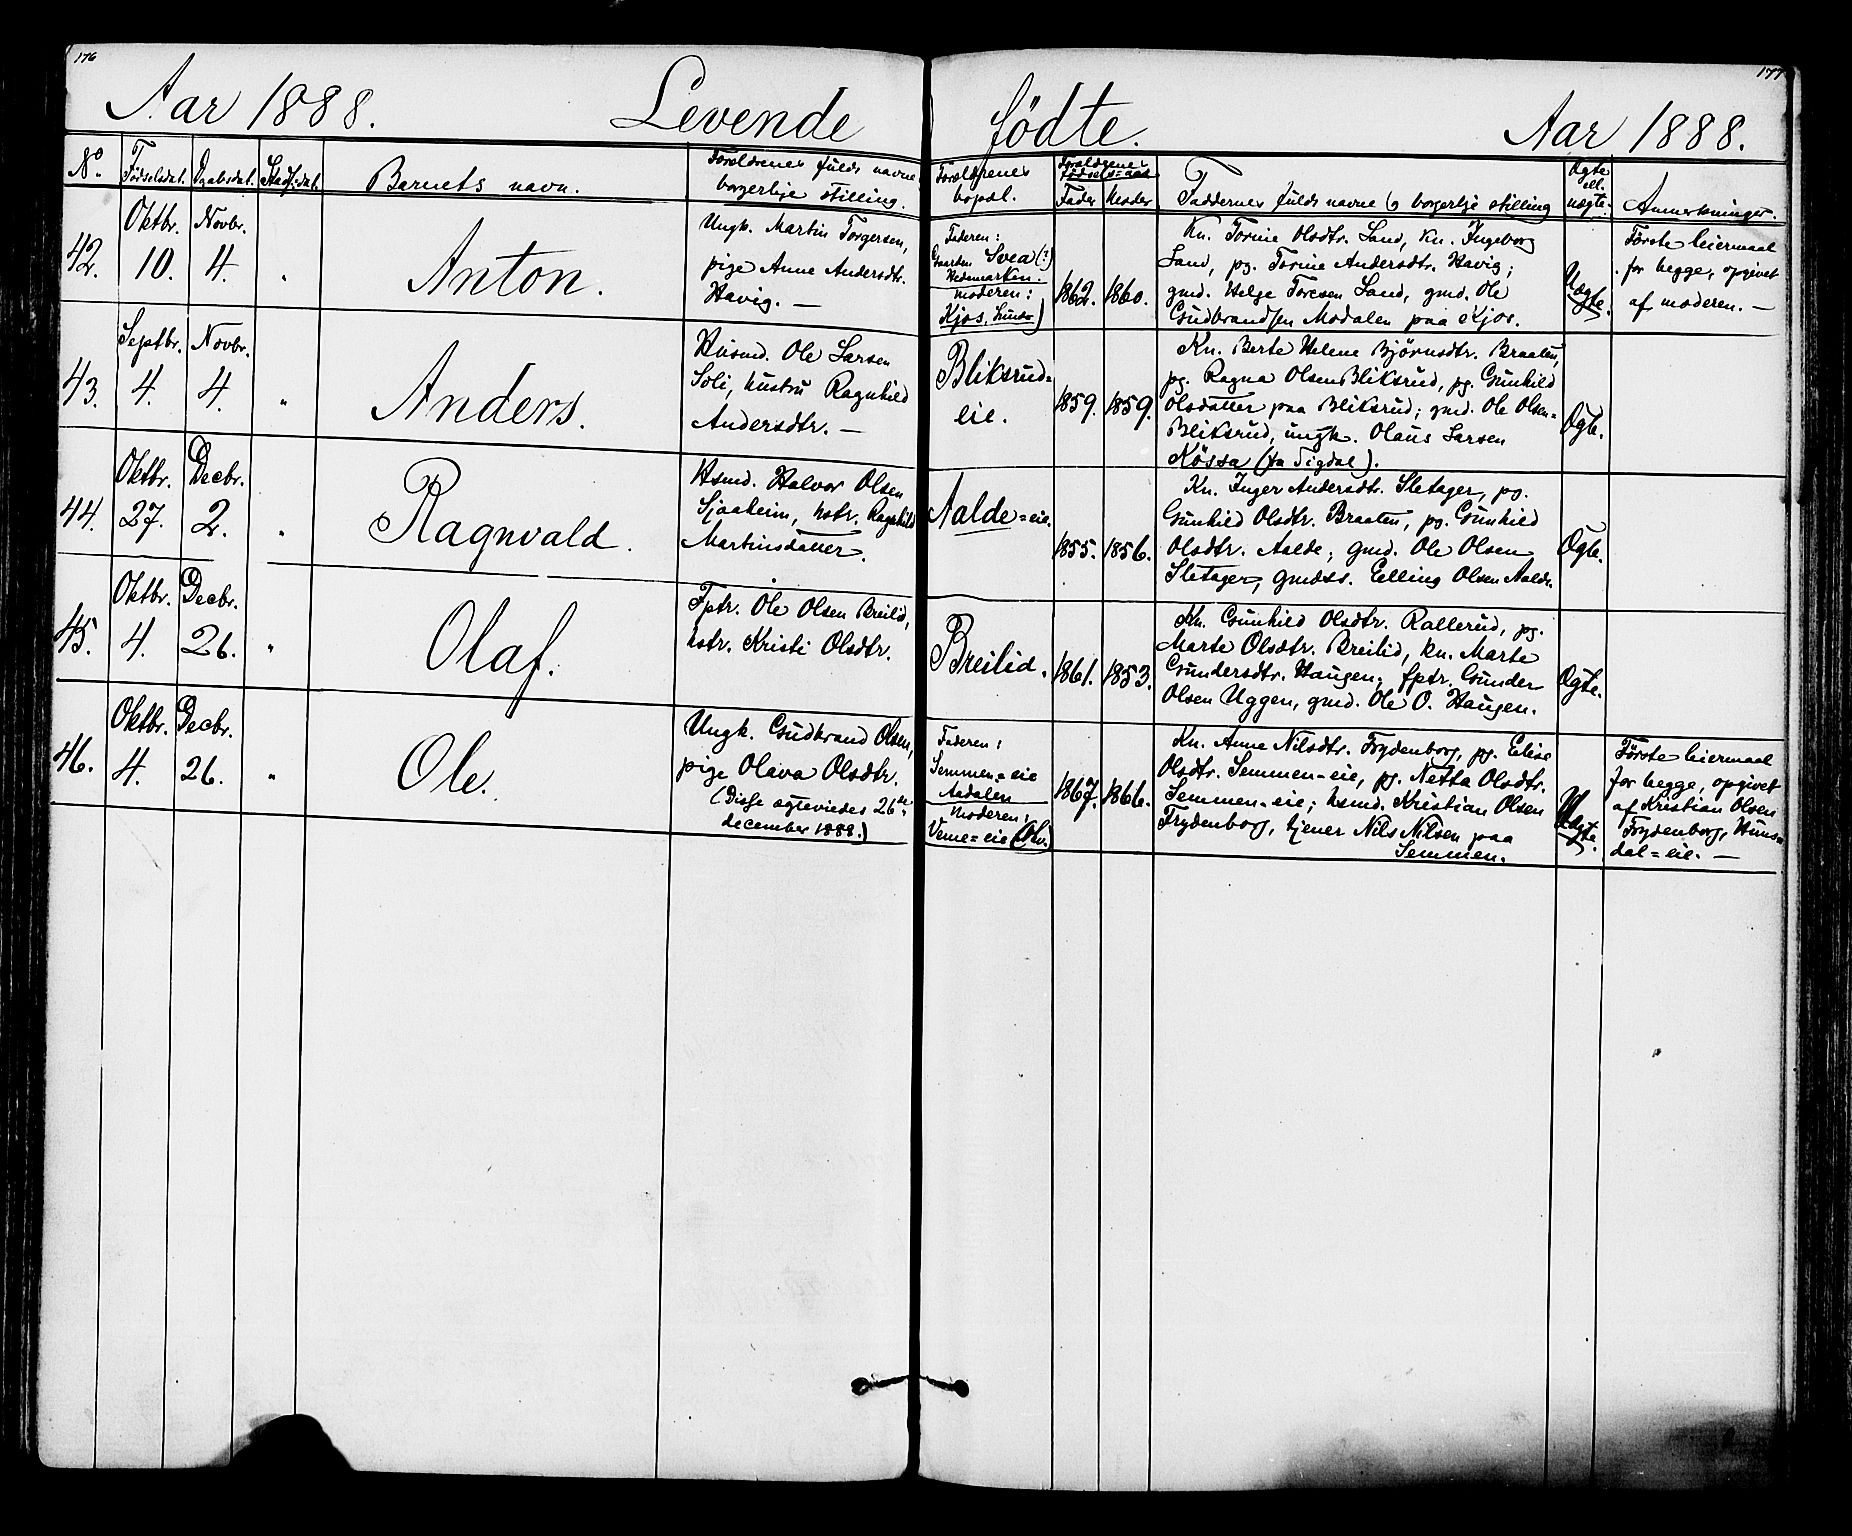 176
177
Aar 1888. Levende fødte. Aar 1888.
No. Fødselsdat. Daabsdat. Stadf.dat. Barnets navn. Forældrenes fulde navne, borgerlige stilling. Forældrenes bopæl. Forældrenes fødsels-aar Fader Moder Faddernes fulde navne og borgerlige stilling Ægte ell. uægte. Anmerkninger.
42. Oktbr. 10. Novbr. 4. " Anton.
Ungk. Martin Torgersen,
pige Anne Andersdtr.
Havig. —
Faderen:
Gaarden Svea (?)
Hedemarken.
Moderen:
Kjos, Lunder)
1862. 1860.
Kn. Torine Olsdtr. Sand, kn. Ingeborg
Sand, pg. Torine Andersdtr. Havig;
gmd. Helge Toresen Sand, gmd. Ole
Gudbrandsen Modalen paa Kjos.
Uægte.
Første leiermaal
for begge, opgivet
af moderen. —
43. Septbr. 4. Novbr. 4. " Anders.
Husmd. Ole Larsen
Soli, hustru Ragnhild
Andersdtr. —
Bliksrud=
eie.
1859. 1859.
Kn. Berte Helene Bjørnsdtr. Braaten,
pg. Ragna Olsen Bliksrud, pg. Gunhild
Olsdatter paa Bliksrud; gmd. Ole Olsen=
Bliksrud, ungk. Olaus Larsen
Kossa (fra Sigdal).
Ægte.
44. Oktbr. 27. Decbr. 2. " Ragnvald.
Hsmd. Halvor Olsen
Sjaaheim, hstr. Ragnhild
Martinsdatter.
Aalde=eie.
1855. 1856.
Kn. Inger Andersdtr. Sletager, pg.
Gunhild Olsdtr. Braaten, pg. Gunhild
Olsdtr. Aalde; gmd. Ole Olsen
Sletager, gmdss. Elling Olsen Aalde.
Ægte.
45. Oktbr. 4. Decbr. 26. " Olaf.
Fptr. Ole Olsen Breilid,
hstr. Kristi Olsdtr.
Breilid.
1861. 1853.
Kn. Gunhild Olsdtr. Rallerud, pg.
Marte Olsdtr. Breilid, kn. Marte
Gundersdtr. Haugen; fptr. Gunder
Olsen Uggen, gmd. Ole O. Haugen.
Ægte.
46. Oktbr. 4. Decbr. 26. " Ole.
Ungk. Gudbrand Olsen,
pige Olava Olsdtr.
(Disse ægteviedes 26de
december 1888.)
Faderen:
Semmen=eie
Aadalen
Moderen:
Veme=eie
1867. 1866.
Kn. Anne Nilsdtr. Frydenborg, pg. Elise
Olsdtr. Semmen-eie, pg. Netta Olsdtr.
Semmen-eie; hsmd. Kristian Olsen
Frydenborg, tjener Nils Nilsen paa
Semmen.
Uægte.
Første leiermaal
for begge, opgivet
af Kristian Olsen
Frydenborg, Huns=
dal=eie. —